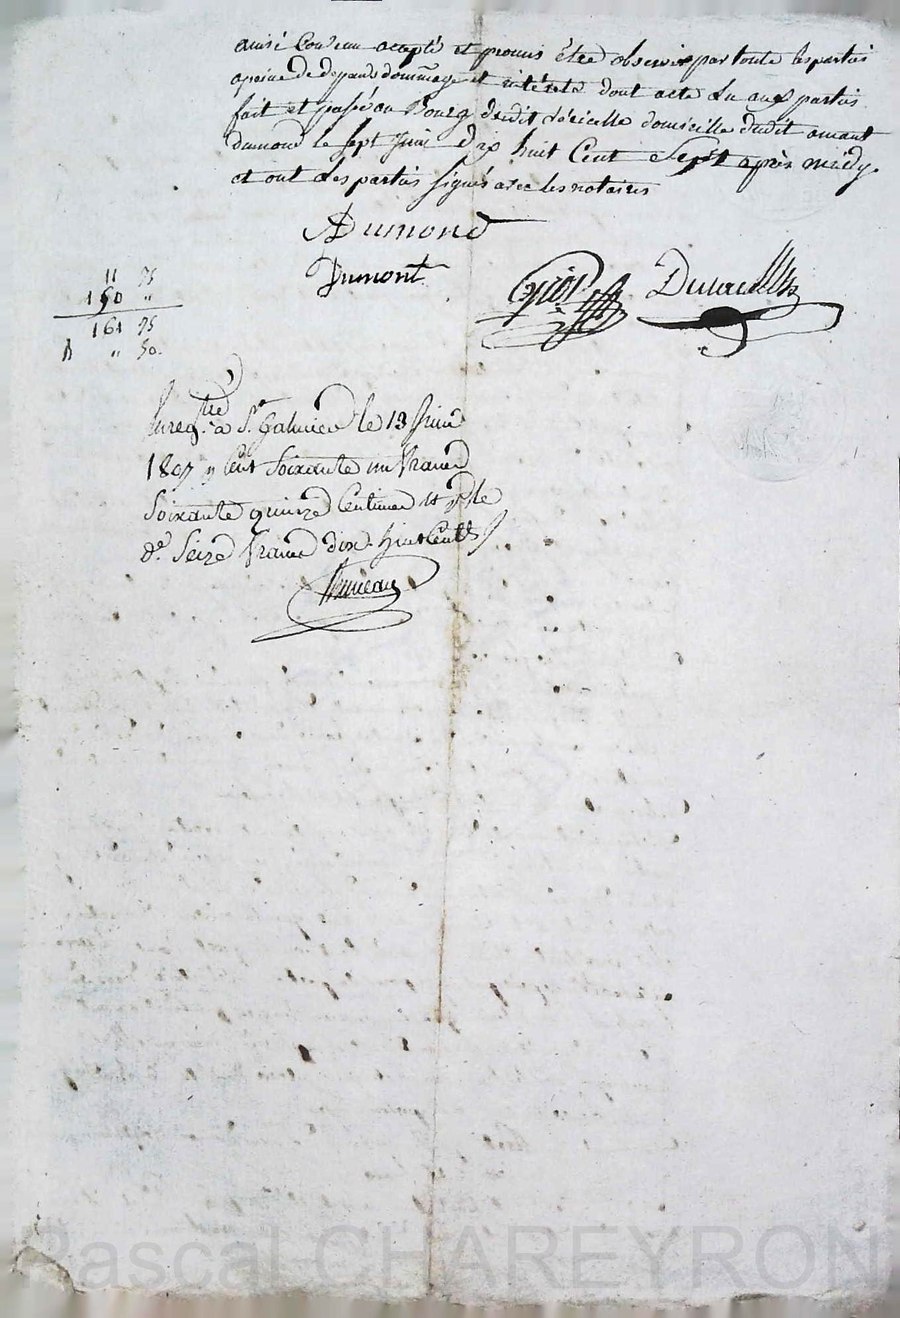 ainsi Convenu accepté et promis Etre observé par toute les parties
a peine de depans dommage et intérets dont acte Lu aux parties
fait et passé au Bourg dudit domicille dudit amant
Dumond le sept Juin dix huit Cent Sept après midy
et ont Les parties signés avec les notaires
ADumond
Dumont
11 75
150 "
161 75
" 50
Enreg.tré a St. Galmier le 13 Juin
1807 Cent Soixante un francs
Soixante quinze Centimes et
de. Seize francs dix huit Cent.s